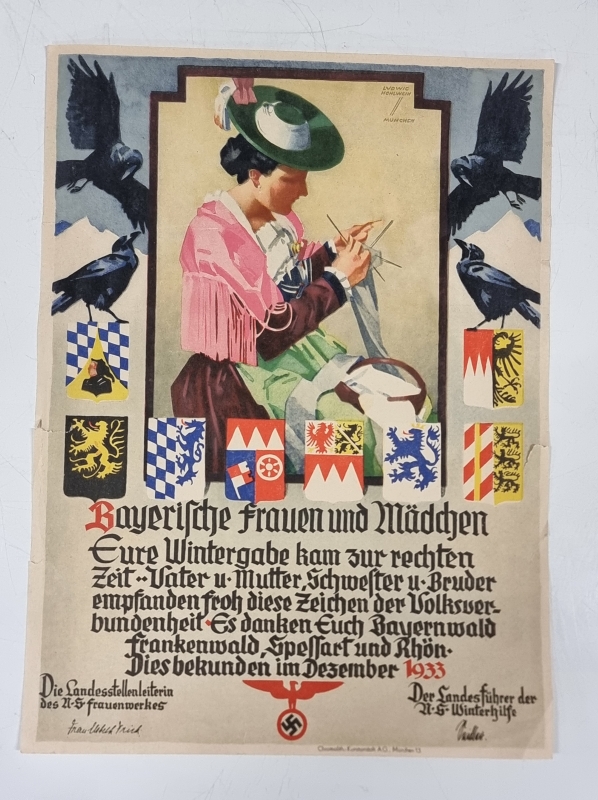 LUDWIG
HOHLWEIN
MÜNCHEN
Bayerische Frauen und Mädchen
Eure Wintergabe kam zur rechten
Zeit·· Vater u· Mutter, Schwester u· Bruder
empfanden froh diese Zeichen der Volksver-
bundenheit·Es danken Euch Bayernwald
Frankenwald, Spessart und Rhön·
Dies bekunden im Dezember 1933
Die Landesstellenleiterin
des N·S·Frauenwerkes
Der Landesführer der
N·S·Winterhilfe
München